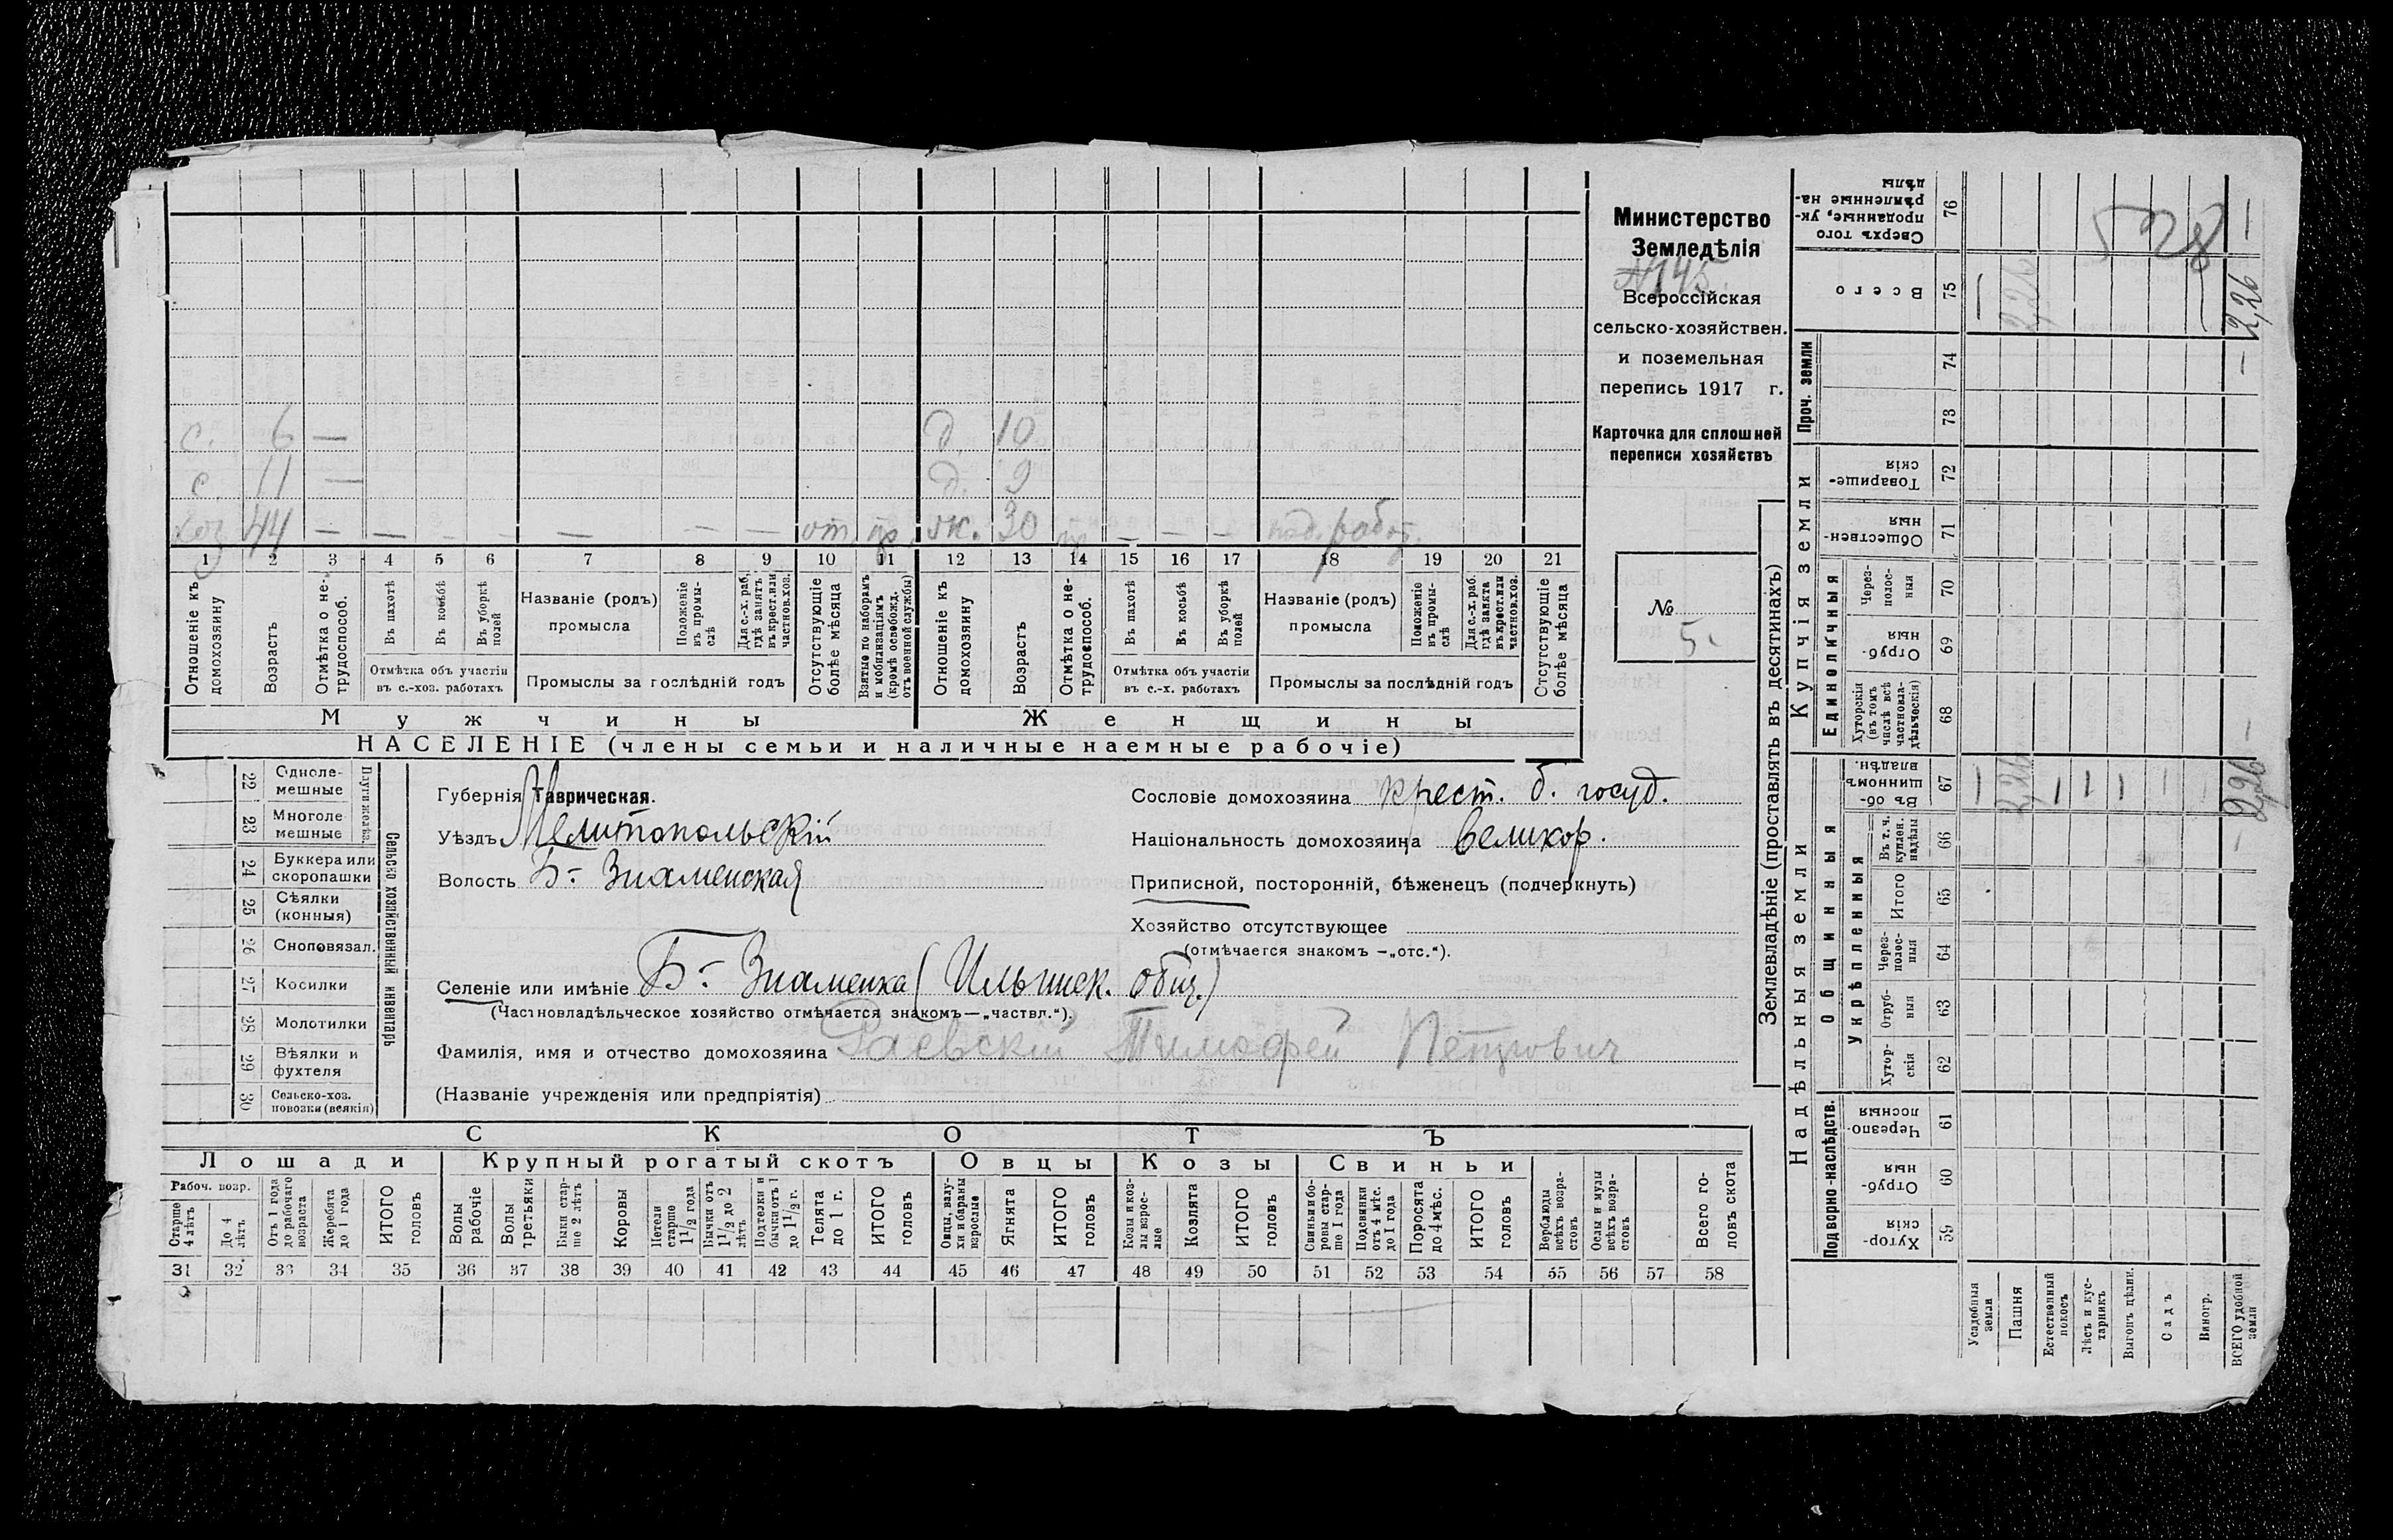 с. 6 — д. 10
с. 11 — д. 9
хоз 44 — — - - — — — от. пр. ж. 30 — — — под. работ.
1 2 3 4 5 6 7 8 9 10 11 12 13 14 15 16 17 18 19 20 21
Отношеніе къ домохозяину
Возрастъ
Отмѣтка о не-трудоспособ.
Въ пахотѣ
Въ косьбѣ
Въ уборкѣ полей
Отмѣтка объ участіи
въ с.-хоз. работахъ
Названіе (родъ)
промысла
Положеніе въ промы-слѣ
Для с.-х. раб. гдѣ занятъ въ крест. или частнов. хоз.
Промыслы за послѣдній годъ
Отсутствующіе болѣе мѣсяца
Взятые по наборамъ и мобилизаціямъ (кромѣ освобожд. отъ военной службы)
Отношеніе къ домохозяину
Возрастъ
Отмѣтка о не-трудоспособ.
Въ пахотѣ
Въ косьбѣ
Въ уборкѣ полей
Отмѣтка объ участіи
въ с.-х. работахъ
Названіе (родъ)
промысла
Положеніе въ промы-слѣ
Для с.-х. раб. гдѣ занята въ крест. или частнов. хоз.
Промыслы за послѣдній годъ
Отсутствующіе болѣе мѣсяца
Мужчины
Женщины
НАСЕЛЕНІЕ (члены семьи и наличные наемные рабочіе)
Министерство
Земледѣлія
№145.
Всероссійская
сельско-хозяйствен.
и поземельная
перепись 1917 г.
Карточка для сплошной
переписи хозяйствъ
№
5.
22 Одноле-мешные
23 Многоле-мешные
Плуги желѣз.
24 Буккера или скоропашки
25 Сѣялки (конныя)
26 Сноповязал.
27 Косилки
28 Молотилки
29 Вѣялки и фухтеля
30 Сельско-хоз. повозки (всякія)
Сельско хозяйственный инвентарь
Губернія Таврическая.
Уѣздъ Мелитопольскій
Волость Б- Знаменская
Сословіе домохозяина крест. б. госуд.
Національность домохозяина великор.
Приписной, посторонній, бѣженецъ (подчеркнуть)
Хозяйство отсутствующее
(отмѣчается знакомъ —„отс.“).
Селеніе или имѣніе Б- Знаменка (Ильинск. общ.)
(Частновладѣльческое хозяйство отмѣчается знакомъ—„частвл.“).
Фамилія, имя и отчество домохозяина Раевскій Тимофей Петрович
(Названіе учрежденія или предпріятія)
СКОТЪ
Лошади
Крупный рогатый скотъ
Овцы
Козы
Свиньи
Рабоч. возр.
Старше 4 лѣтъ
До 4 лѣтъ
Отъ 1 года до рабочаго возраста
Жеребята до 1 года
ИТОГО головъ
Волы рабочіе
Волы третьяки
Быки стар-ше 2 лѣтъ
Коровы
Нетели старше 1½ года
Бычки отъ 1½ до 2 лѣтъ
Подтелки и бычки отъ 1 до 1½ г.
Телята до 1 г.
ИТОГО головъ
Овцы, валу-хи и бараны взрослые
Ягнята
ИТОГО головъ
Козы и коз-лы взрос-лые
Козлята
ИТОГО головъ
Свиньи и бо-ровы стар-ше 1 года
Подсвинки отъ 4 мѣс. до 1 года
Поросята до 4 мѣс.
ИТОГО головъ
Верблюды всѣхъ возра-стовъ
Ослы и мулы всѣхъ возра-стовъ
Всего го-ловъ скота
31 32 33 34 35 36 37 38 39 40 41 42 43 44 45 46 47 48 49 50 51 52 53 54 55 56 57 58
Землевладѣніе (проставлять въ десятинахъ)
Надѣльныя земли
Купчія земли
Проч. земли
Подворно-наслѣдств.
Общинныя
Укрѣпленныя
Единоличныя
Сверхъ того проданные, ук-рѣпленные на-дѣлы 76 528 —
Всего 75 — 2,26 — 2,26
74 —
73
Товарище-скія 72
Обществен-ныя 71
Через-полос-ныя 70
Отруб-ныя 69
Хуторскія (въ томъ числѣ всѣ частновла-дѣльческія) 68 —
Въ об-щинномъ владѣн. 67 — 2,26 — — — — 2,26
Въ т. ч. куплен. надѣлы 66 —
Итого 65
Через-полос-ныя 64
Отруб-ныя 63
Хутор-скія 62
Черезпо-лосныя 61
Отруб-ныя 60
Хутор-скія 59
Усадебныя земли
Пашня
Естественный покосъ
Лѣсъ и кус-тарникъ
Выгонъ цѣлин.
Садъ
Виногр.
ВСЕГО удобной земли